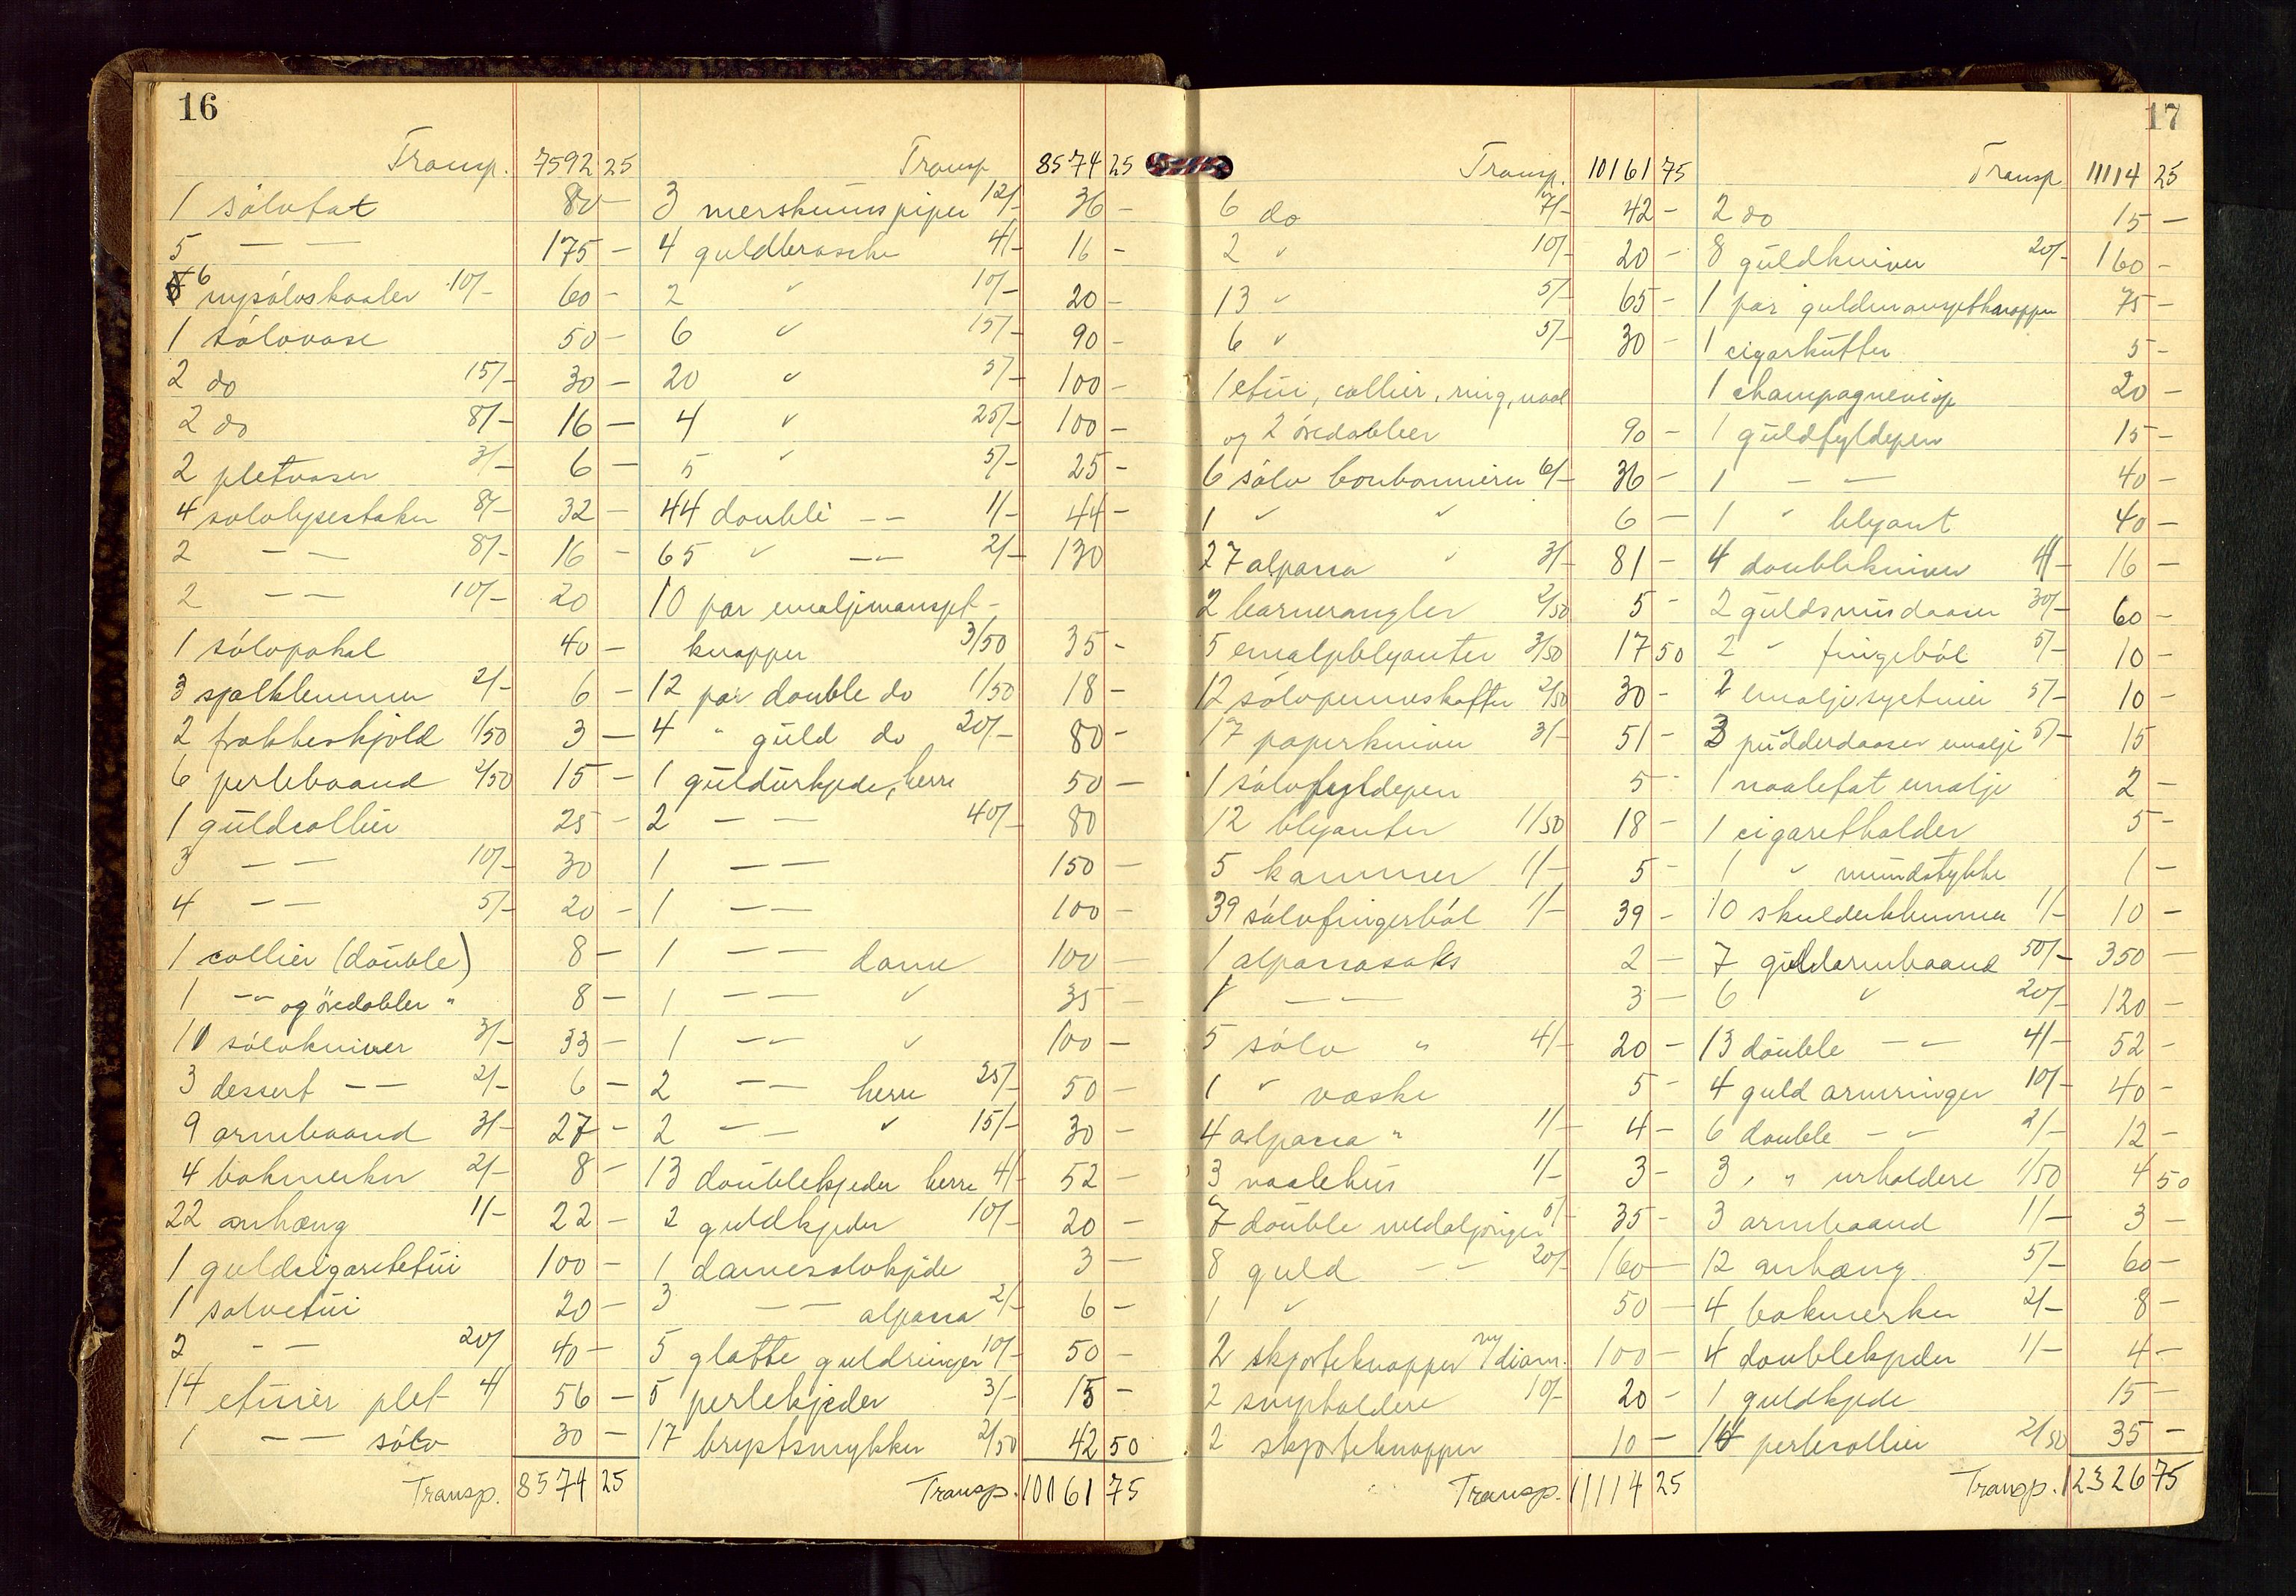 16
Transp. 7592 25
1 sölvfat 80 -
5 — — 175 -
6 nysölvskaaler 10/- 60 -
1 sölvvase 50 -
2 do 15/- 30 -
2 do 8/- 16 -
2 pletvaser 3/- 6 -
4 solvlysestaker 8/- 32 -
2 — — 8/- 16 -
2 — — 10/- 20
1 sölvpokal 40 -
3 sjalklemmer 2/- 6 -
2 frakkeskjold 1/50 3 -
6 perlebaand 2/50 15 -
1 guldcollier 25 -
3 — — 10/- 30
4 — — 5/- 20 -
1 collier (double) 8 -
1 — og öredobler " 8 -
11 sölvkniver 3/- 33 -
3 dessert — — 2/- 6 -
9 armbaand 3/- 27 -
4 bokmerker 2/- 8 -
22 anhæng 1/- 22 -
1 guldcigaretetui 100 -
1 solvetui 20 -
2 — — 20/ 40 -
14 etuier plet 4/ 56 -
1 — — sölv 30 -
Transp. 8574 25
Transp 8574 25
3 merskumspiper 12/- 36 -
4 guldbrosche 4/- 16 -
2 " 10/- 20 -
6 " 15/- 90 -
20 " 5/- 100 -
4 " 25/- 100 -
5 " 5/- 25 -
44 double — — 1/- 44 -
65 " — — 2/- 130
10 par emaljemansjet-
knapper 3/50 35 -
12 par double do 1/50 18 -
4 " guld do 20/- 80 -
1 guldurkjede, herre 50 -
2 — — 40/- 80
1 — — 150 -
1 — — 100 -
1 — — dame 100 -
1 — — " 35 -
1 — — " 100 -
2 — — herre 25/- 50 -
2 — — " 15/- 30 -
13 doublekjeder herre 4/- 52 -
2 guldkjeder 10/- 20 -
1 damesolvkjede 3 -
3 — — alpacca 2/- 6 -
5 glatte guldringer 10/- 50 -
5 perlekjeder 3/- 15 -
17 brystsmykker 2/50 42 50
Transp. 10161 75
17
Transp. 10161 75
6 do 7/- 42 -
2 " 10/- 20 -
13 " 5/- 65 -
6 " 5/- 30 -
1 etui, collier, ring, naal
og 2 öredobber 90 -
6 sölv bonbonnierer 6/- 36 -
1 " " 6 -
27 alpacca " 3/- 81 -
2 barnerangler 2/50 5 -
5 emaljeblyanter 3/50 17 50
12 sölvpenneskafter 2/50 30 -
17 paperkniver 3/- 51 -
1 sölvfyldepen 5 -
12 blyanter 1/50 18 -
5 kammer 1/- 5 -
39 sölvfingerböl 1/- 39 -
1 alpaccasaks 2 -
1 — — 3 -
5 sölv " 4/- 20 -
1 " væske 5 -
4 alpacca " 1/- 4 -
3 naalehus 1/- 3 -
7 double medaljonger 5/- 35 -
8 guld — — 20/- 160 -
1 " 50 -
2 skjorteknapper m/diam. 100 -
2 snipholdere 10/- 20 -
2 skjorteknapper 10 -
Transp. 11114 25
Transp 11114 25
2 do 15 -
8 guldkniver 20/- 160 -
1 par guldmansjetknapper 75 -
1 cigarkutter 5 -
1 champagnevisp 20 -
1 guldfyldepen 15 -
1 — — 40 -
1 " blyant 40 -
4 doublekniver 4/- 16 -
2 guldsnusdaaser 30/- 60 -
2 " fingeböl 5/- 10 -
2 emaljesyetuier 5/- 10 -
3 pudderdaaser emalje 5/- 15
1 naalefat emalje 2 -
1 cigaretholder 5 -
1 " mundstykke 1 -
10 skulderklemmer 1/- 10 -
7 guldarmbaand 50/- 350 -
6 " 20/- 120 -
13 double — — 4/- 52 -
4 guld armringer 10/- 40 -
6 double — — 2/- 12 -
3 " " urholdere 1/50 4 50
3 armbaand 1/- 3 -
12 anhæng 5/- 60 -
4 bokmerker 2/- 8 -
4 doublekjeder 1/- 4 -
1 guldkjede 15 -
14 perlecollier 2/50 35 -
Transp. 12326 75